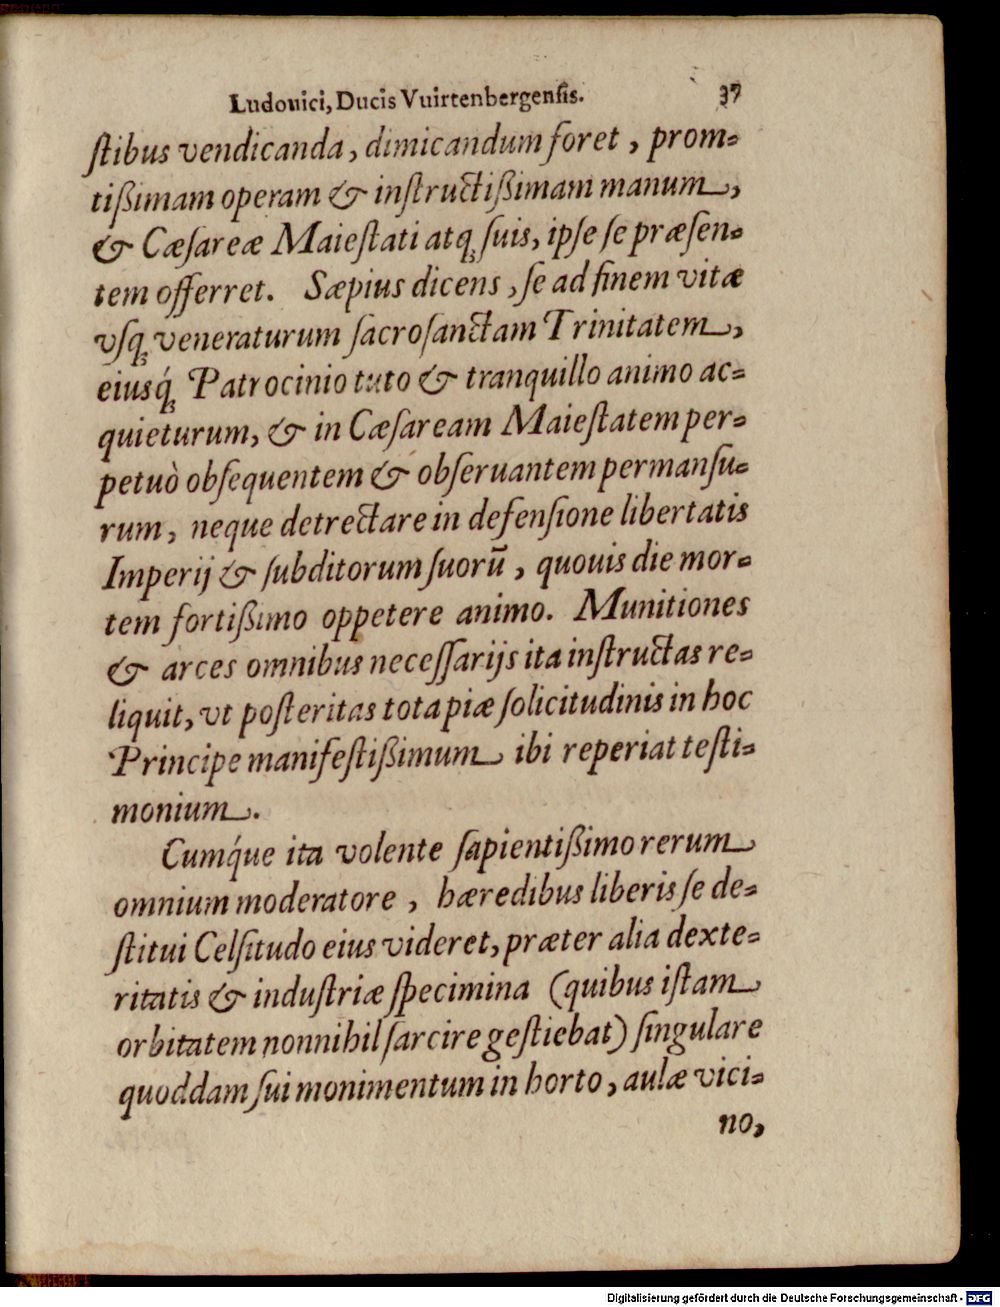 Ludouici, Ducis Vuirtenbergensis. 37
ſtibus vendicanda, dimicandum foret, prom-
tißimam operam & inſtructißimam manum,
& Cæſareæ Maieſtati atq; ſuis, ipſe ſe præſen-
tem offerret. Sæpius dicens, ſe ad finem vitæ
vſq; veneraturum ſacroſanctam Trinitatem,
eiusq́; Patrocinio tuto & tranquillo animo ac-
quieturum, & in Cæſaream Maieſtatem per-
petuò obſequentem & obſeruantem permanſu-
rum, neque detrectare in defenſione libertatis
Imperij & ſubditorum ſuorū, quouis die mor-
tem fortißimo oppetere animo. Munitiones
& arces omnibus neceſſarijs ita inſtructas re-
liquit, vt poſteritas tota piæ ſolicitudinis in hoc
Principe manifeſtißimum ibi reperiat teſti-
monium.
Cumq́ue ita volente ſapientißimo rerum
omnium moderatore, hæredibus liberis ſe de-
ſtitui Celſitudo eius videret, præter alia dexte-
ritatis & induſtriæ ſpecimina (quibus iſtam
orbitatem nonnihil ſarcire geſtiebat) ſingulare
quoddam ſui monimentum in horto, aulæ vici-
no,
Digitalisierung gefördert durch die Deutsche Forschungsgemeinschaft - DFG